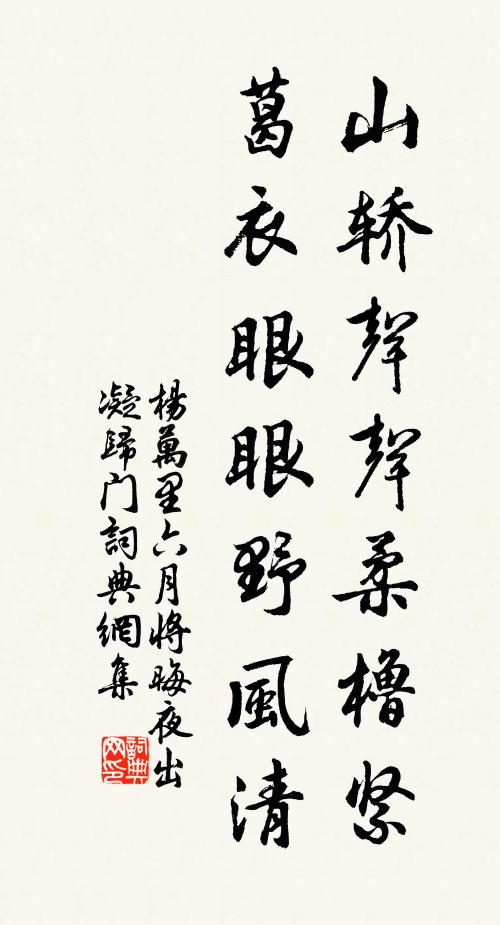 山轿聲聲柔櫓紧
葛衣眼眼野風清
楊萬里六月將晦夜出
凝歸门詞典網集
詞典网印